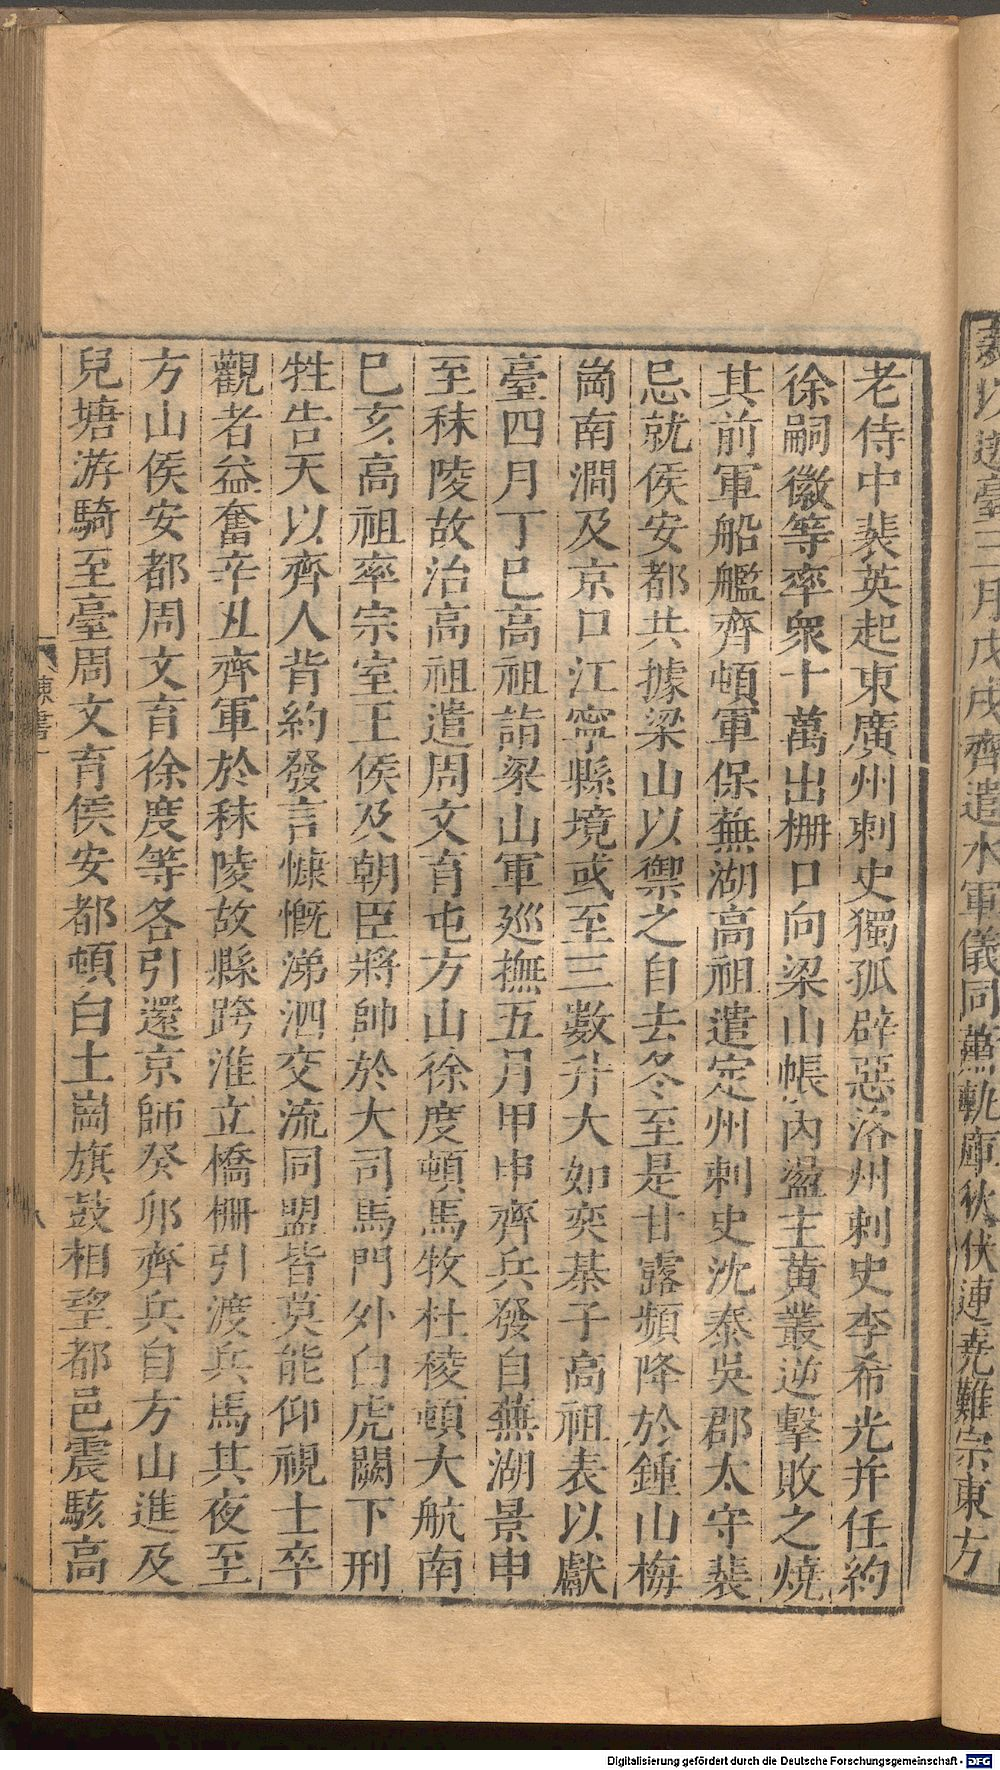 老侍中裴英起東廣州刺史獨孤辟惡洛州刺史李希光并任約
徐嗣徽等率衆十萬出柵口向梁山帳內盪主黃叢逆擊敗之燒
其前軍船艦齊頓軍保蕪湖高祖遣定州刺史沈泰吳郡太守裴
忌就侯安都共據梁山以禦之自去冬至是甘露頻降於鍾山梅
崗南澗及京口江寧縣境或至三數升大如奕棊子高祖表以獻
臺四月丁巳高祖詣梁山軍廵撫五月甲申齊兵發自蕪湖景申
至秣陵故治高祖遣周文育屯方山徐度頓馬牧杜稜頓大航南
巳亥高祖率宗室王侯及朝臣將帥於大司馬門外白虎闕下刑
牲告天以齊人背約發言慷慨涕泗交流同盟皆莫能仰視士卒
觀者益奮辛丑齊軍於秣陵故縣跨淮立橋柵引渡兵馬其夜至
方山侯安都周文育徐度等各引還京師癸卯齊兵自方山進及
兒塘游騎至臺周文育侯安都頓白土崗旗鼓相望都邑震駭高
臺三月戊戌齊遣水軍儀同蕭軌庫狄伏連堯難宗東方
陳書一
八
Digitalisierung gefördert durch die Deutsche Forschungsgemeinschaft - DFG